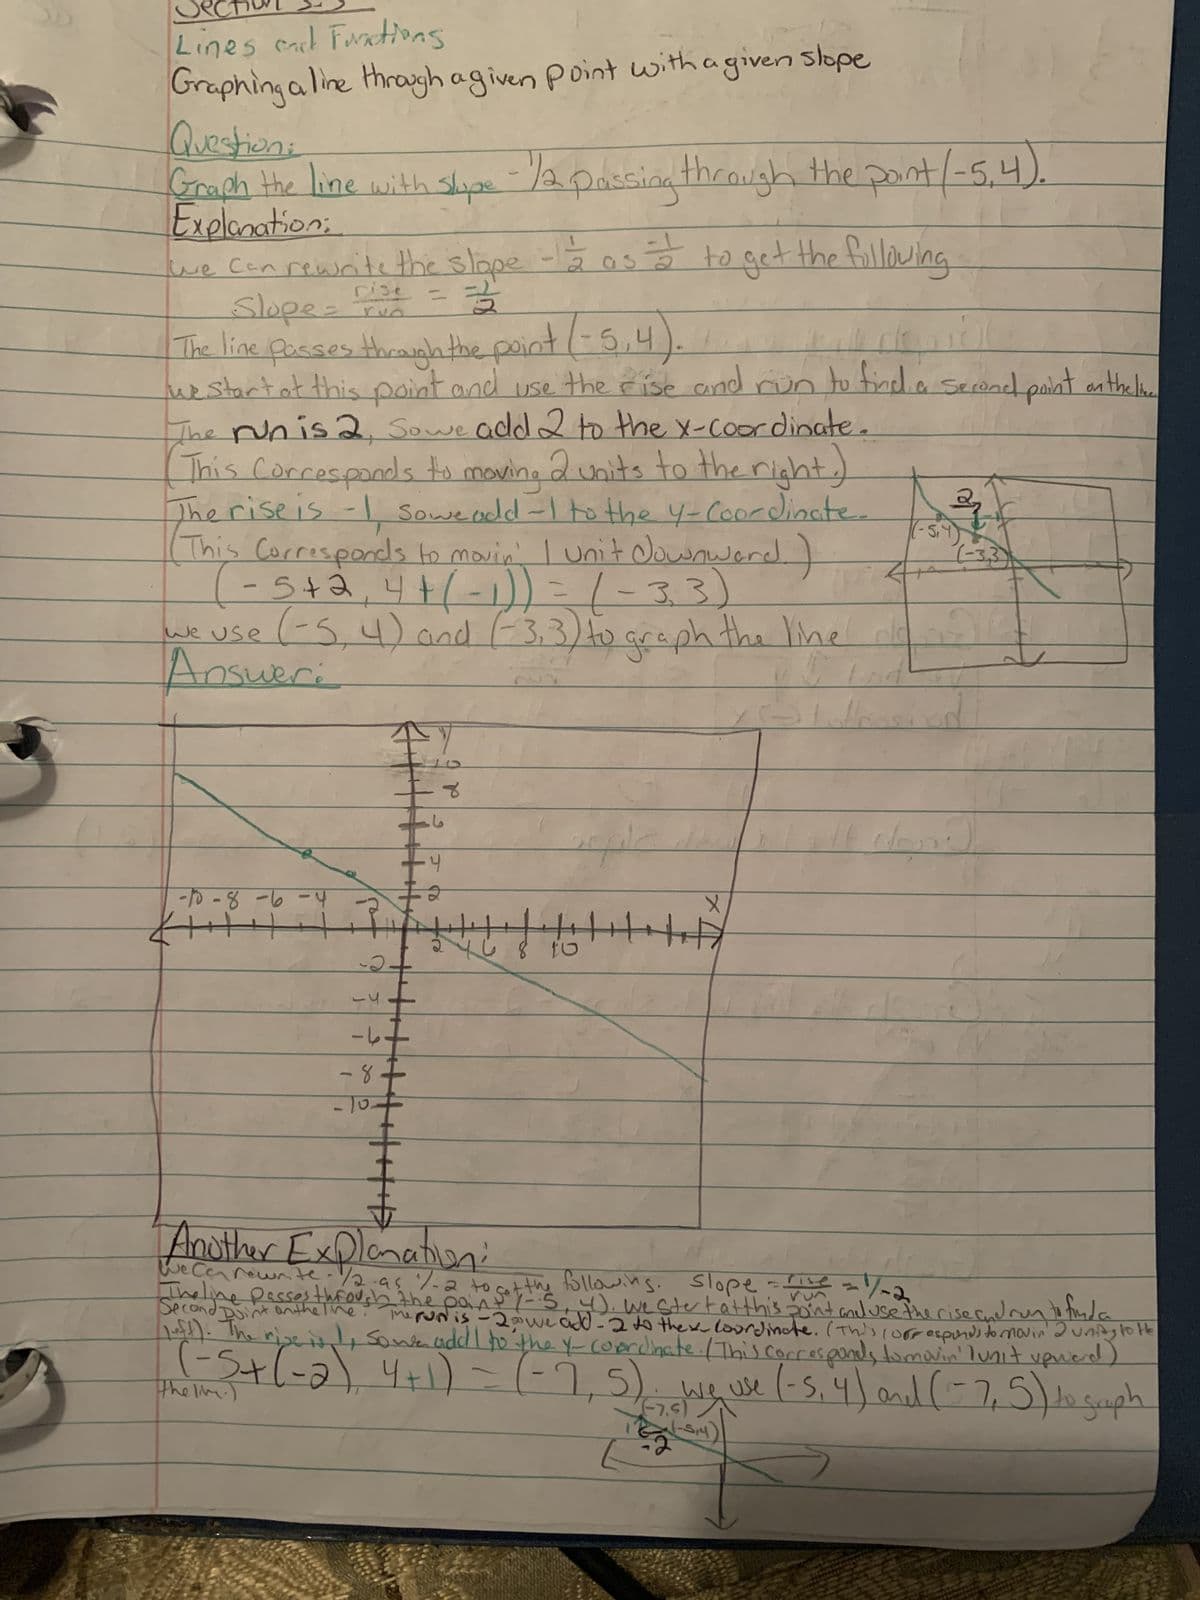 Section 3.3
Lines and Functions
Graphing a line through a given point with a given slope
Question:
Graph the line with slope -1/2 passing through the point (-5,4).
Explanation:
we can rewrite the slope -1/2 as -1/2 to get the following
Slope = rise/run = -1/2
The line passes through the point (-5,4).
we start at this point and use the rise and run to find a second point on the line
The run is 2, so we add 2 to the x-coordinate.
(This corresponds to moving 2 units to the right.)
The rise is -1, so we add -1 to the y-coordinate.
(This corresponds to movin' 1 unit downward.)
(-5+2, 4+(-1)) = (-3,3)
we use (-5,4) and (-3,3) to graph the line
2
-1
(-5,4)
(-3,3)
Answer:
y
10
8
6
4
2
-10 -8 -6 -4 -2
x
2 4 6 8 10
-2
-4
-6
-8
-10
Another Explanation:
We can rewrite -1/2 as 1/-2 to get the following. Slope = rise/run = 1/-2
The line passes through the point (-5,4). we start at this point and use the rise and run to find a
second point on the line. The run is -2, so we add -2 to the x coordinate. (This corresponds to movin' 2 units to the
left). The rise is 1, so we add 1 to the y-coordinate. (This corresponds to movin' 1 unit upward)
(-5+(-2), 4+1) = (-7,5). we use (-5,4) and (-7,5) to graph
the line.)
(-7,5)
1
(-5,4)
-2